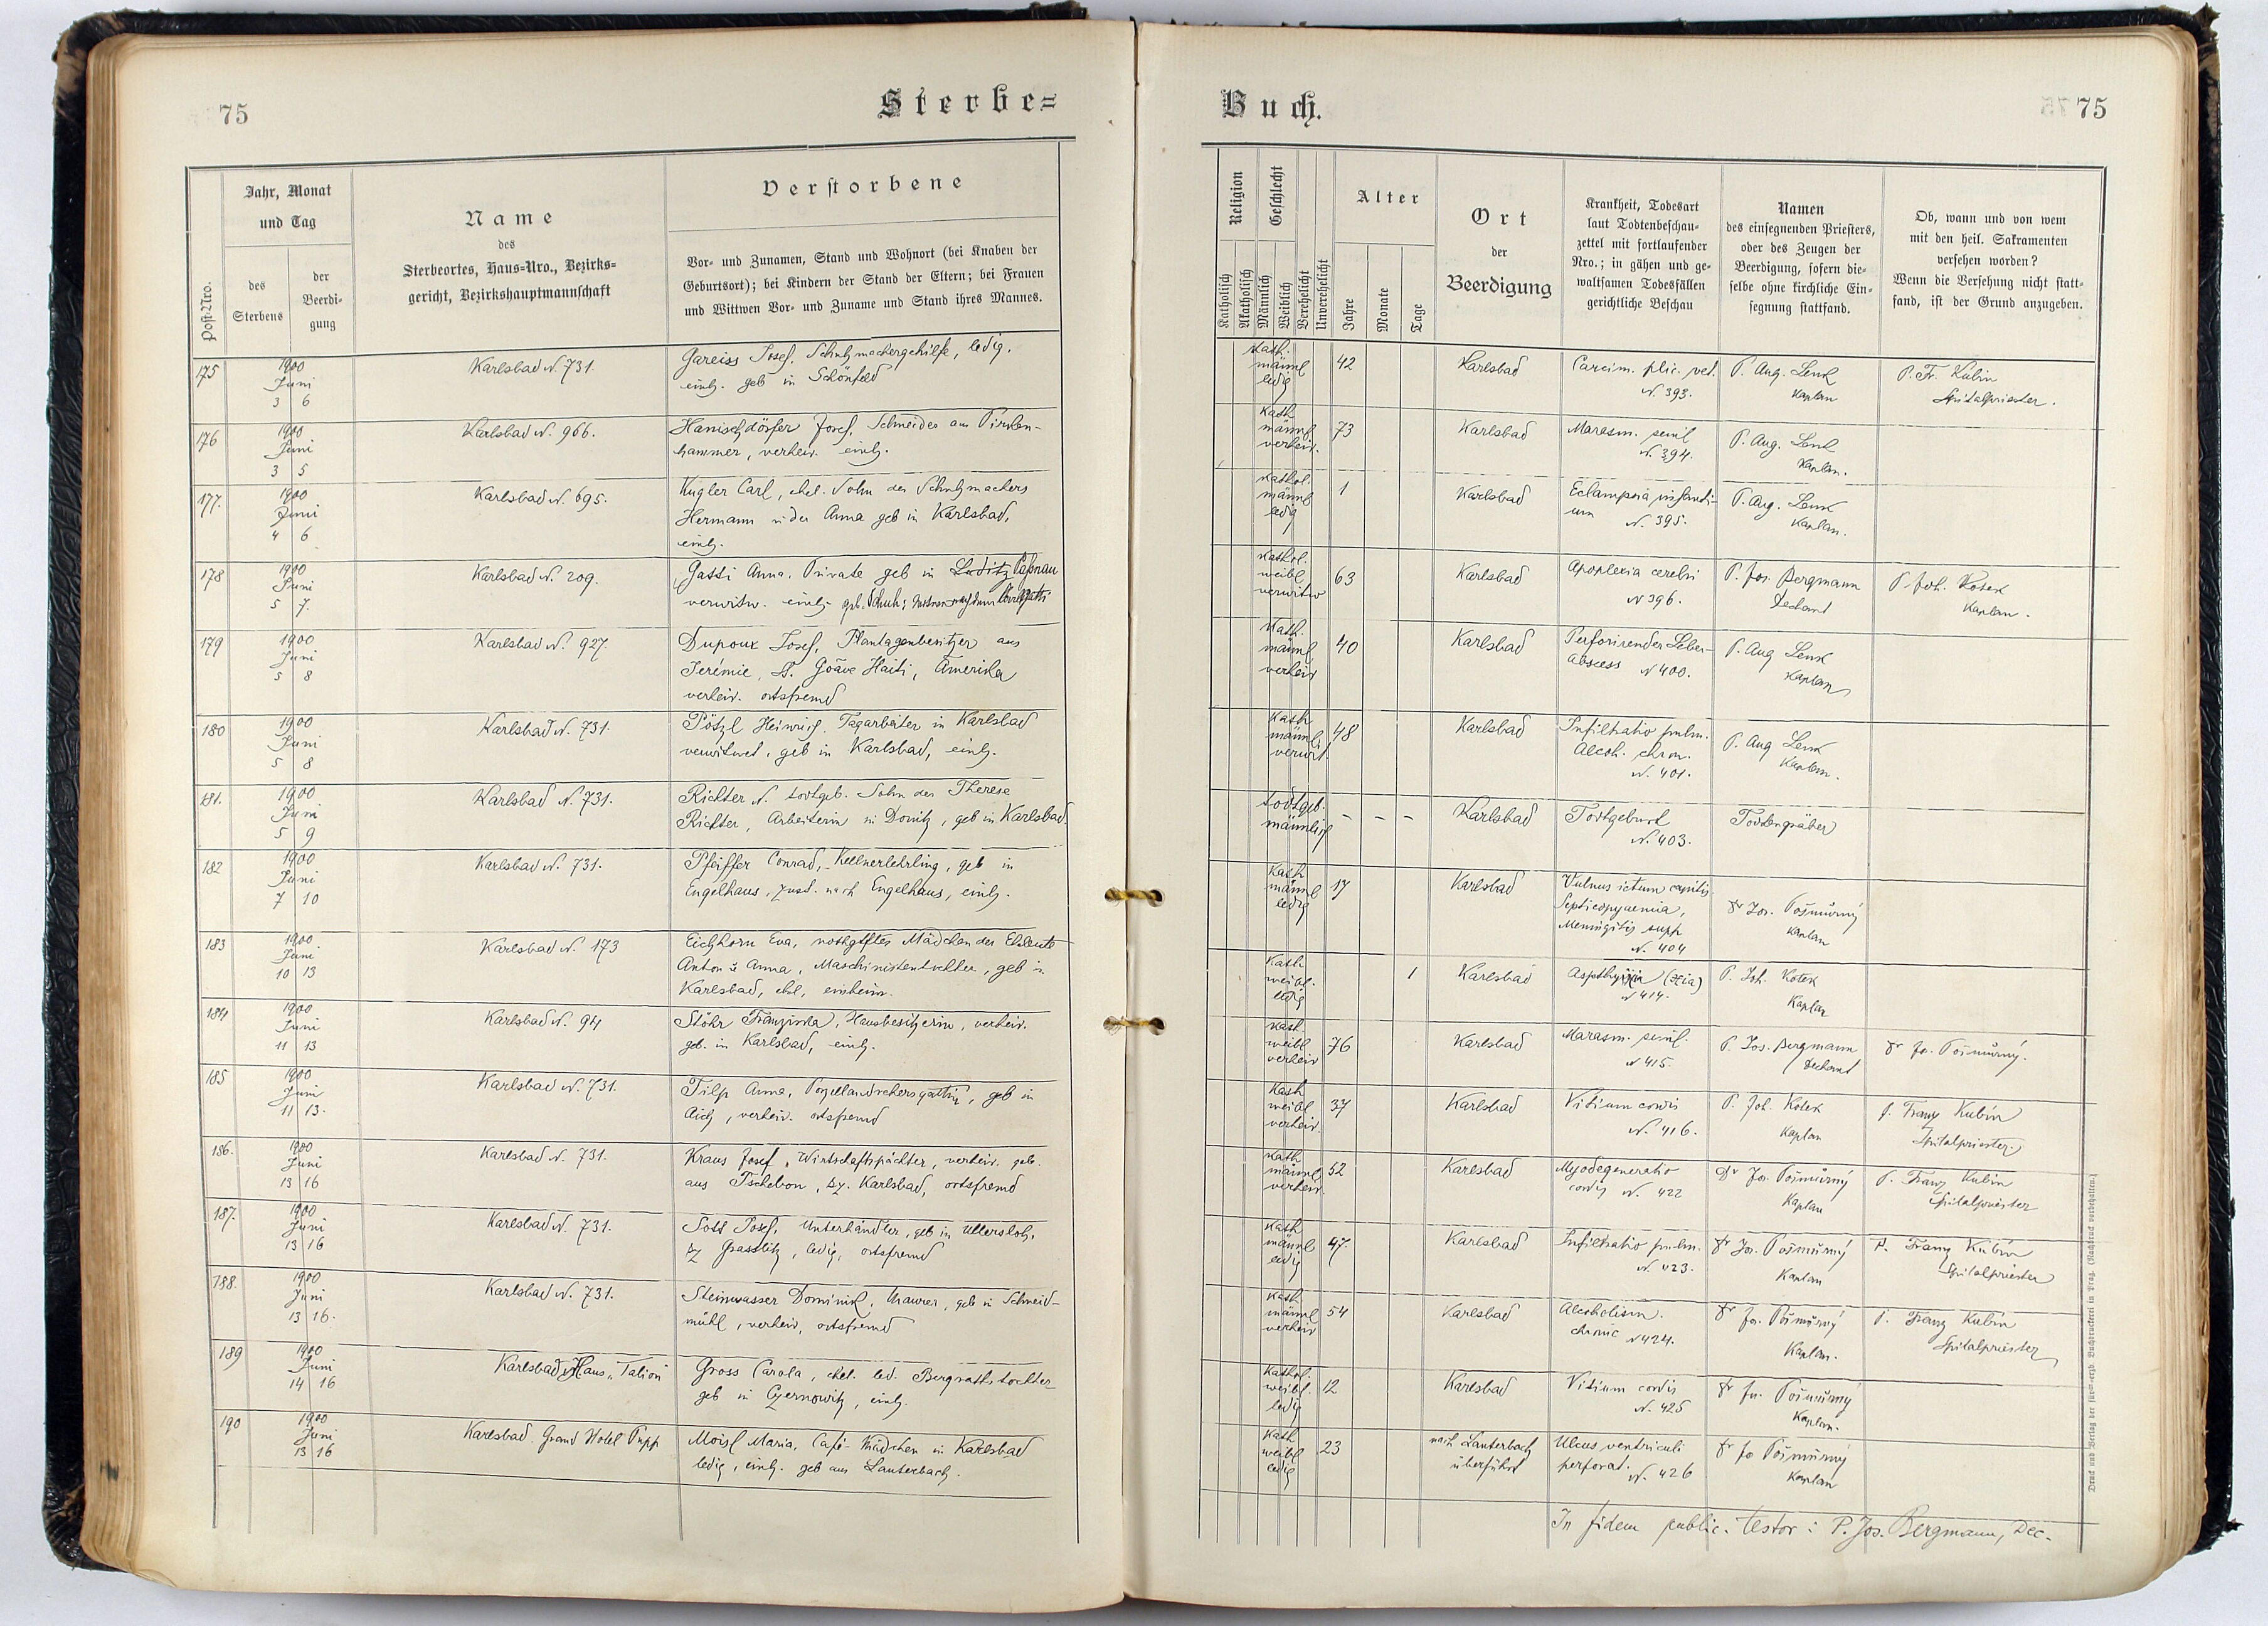 75
Sterbe=
Jahr, Monat
und Tag
Post-Nro.
des
Sterbens
der
Beerdi-
gung
Name
des
Sterbeortes, Haus-Nro., Bezirks-
gericht, Bezirkshauptmannschaft
Verstorbene
Vor- und Zunamen, Stand und Wohnort (bei Knaben der
Geburtsort); bei Kindern der Stand der Eltern; bei Frauen
und Wittwen Vor- und Zuname und Stand ihres Mannes.
175
1900
Juni
3 6
Karlsbad N. 731.
Gareiss Josef, Schuhmachergehilfe, ledig,
einh. geb in Schönfeld
176
1900
Juni
3 5
Karlsbad N. 966.
Hanischdörfer Josef, Schneider aus Pirken-
hammer, verheir. einh.
177.
1900
Juni
4 6
Karlsbad N. 695.
Kugler Carl, ehel. Sohn des Schuhmachers
Hermann u der Anna geb in Karlsbad,
einh.
178
1900
Juni
5 7.
Karlsbad N. 209.
Gatti Anna, Private geb in Luditz
verwitw. einh. geb. Schuh;
179
1900
Juni
5 8
Karlsbad N. 927.
Dupoux Josef, Plantagenbesitzer aus
Jerémie, Goâve Haiti, Amerika
verheir. ortsfremd
180
1900
Juni
5 8
Karlsbad N. 731.
Pötzl Heinrich, Tagarbeiter in Karlsbad
verwitwet, geb in Karlsbad, einh.
181.
1900
Juni
5 9
Karlsbad N. 731.
Richter N. todtgeb. Sohn der Therese
Richter, Arbeiterin in Donitz, geb in Karlsbad.
182
1900
Juni
7 10
Karlsbad N. 731.
Pfeiffer Conrad, Kellnerlehrling, geb in
Engelhaus, zust. nach Engelhaus, einh.
183
1900.
Juni
10 13
Karlsbad N. 173
Eichhorn Eva, nothgetftes Mädchen der Eheleute
Anton u Anna, Maschinistentochter, geb in
Karlsbad, ehel, einheim.
184
1900
Juni
11 13
Karlsbad N. 94
Stöhr Franziska, Hausbesitzerin, verheir.
geb. in Karlsbad, einh.
185
1900
Juni
11 13.
Karlsbad N. 731.
Tilp Anna, Porzellandrehersgattin, geb in
Aich, verheir. ortsfremd
186.
1900
Juni
13 16
Karlsbad N. 731.
Kraus Josef, Wirtschaftspächter, verheir. geb.
aus Tschebon, Bz. Karlsbad, ortsfremd
187.
1900
Juni
13 16
Karlsbad N. 731.
Josef, Unterhändler, geb in Ullersloh,
Bz Grasslitz, ledig, ortsfremd
188.
1900
Juni
13 16.
Karlsbad N. 731.
Steinwasser Dominik, Maurer, geb in Schneid-
mühl, verheir, ortsfremd
189
1900
Juni
14 16
Karlsbad Haus
Gross Carola, ehel. led. Bergrathstochter
geb in Czernowitz, einh.
190
1900
Juni
13 16
Karlsbad. Grand Hotel Pupp
Moisl Maria, Café-Mädchen in Karlsbad
ledig, einh. geb aus Lauterbach.
Buch.
75
Religion
Katholisch
Akatholisch
Geschlecht
Männlich
Weiblich
Verehelicht
Unverehelicht
Alter
Jahre
Monate
Tage
Ort
der
Beerdigung
Krankheit, Todesart
laut Todtenbeschau-
zettel mit fortlaufender
Nro.; in gähen und ge-
waltsamen Todesfällen
gerichtliche Beschau
Namen
des einsegnenden Priesters,
oder des Zeugen der
Beerdigung, sofern die-
selbe ohne kirchliche Ein-
segnung stattfand.
Ob, wann und von wem
mit den heil. Sakramenten
versehen worden?
Wenn die Versehung nicht statt-
fand, ist der Grund anzugeben.
Kath.
männl
ledig
42
Karlsbad
Carcim. plic. vet.
N. 393.
P. Aug. Lenk
Kaplan
P. Fr. Kubin
Spitalpriester.
Kath
männl
verheir.
73
Karlsbad
Marasm. senil
N. 394.
P. Aug. Lenk
Kaplan.
Kathol.
männl
ledig
1
Karlsbad
Eclampsia infanti-
um N. 395.
P. Aug. Lenk
Kaplan.
Kathol.
weibl
verwitw
63
Karlsbad
Apoplexia cerebri
N 396.
P. Jos. Bergmann
Dechant
P. Joh. Kotek
Kaplan.
Kath.
männl
verheir
40
Karlsbad
Perforirender Leber-
Abscess N 400.
P. Aug Lenk
Kaplan
Kath
männl.
verwit.
48
Karlsbad
Infiltratio pulm.
Alcoh. chron.
N. 401.
P. Aug Lenk
Kaplan.
todtgeb.
männlich
- - -
Karlsbad
Todtgeburt
N. 403.
Todtengräber
Kath
männl
ledig
17
Karlsbad
Vulnus ictum capitis
Septicopyaemia,
Meningitis supp
N. 404
Dr Jos. Pošmůrný
Kaplan
Kath
weibl.
ledig
1
Karlsbad
(xia)
N 414.
P. Joh. Kotek
Kaplan
Kath
weibl
verheir
76
Karlsbad
Marasm. senil.
N 415.
P. Jos. Bergmann
Dechant
Dr Jos. Pošmůrný.
Kath
weibl
verheir.
37
Karlsbad
Vitium cordis
N. 416.
P. Joh. Kotek
Kaplan
P. Franz Kubín
Spitalpriester.
Kath
männl
verheir.
52
Karlsbad
Myodegeneratio
cordis N. 422
Dr Jos. Pošmůrný
Kaplan
P. Franz Kubin
Spitalpriester
Kath
männl
ledig
47.
Karlsbad
Infiltratio pulm.
N. 423.
Dr Jos. Pošmůrný
Kaplan
P. Franz Kubín
Spitalpriester
Kath
männl
verheir
54
Karlsbad
Alcoholism.
chronic N 424.
Dr Jos. Pošmůrný
Kaplan.
P. Franz Kubin
Spitalpriester
Kathol.
weibl.
ledig
12
Karlsbad
Vitium cordis
N. 425
Dr Jos. Pošmůrný
Kaplan.
Kath
weibl
ledig
23
nach Lauterbach
überführt
Ulcus ventriculi
perforat.
N. 426
Dr Jo Pošmůrný
Kaplan
In fidem public. testor: P. Jos. Bergmann, Dec.
Druck und Verlag der fürst-erzb. Buchdruckerei in Prag. (Nachdruck vorbehalten.)